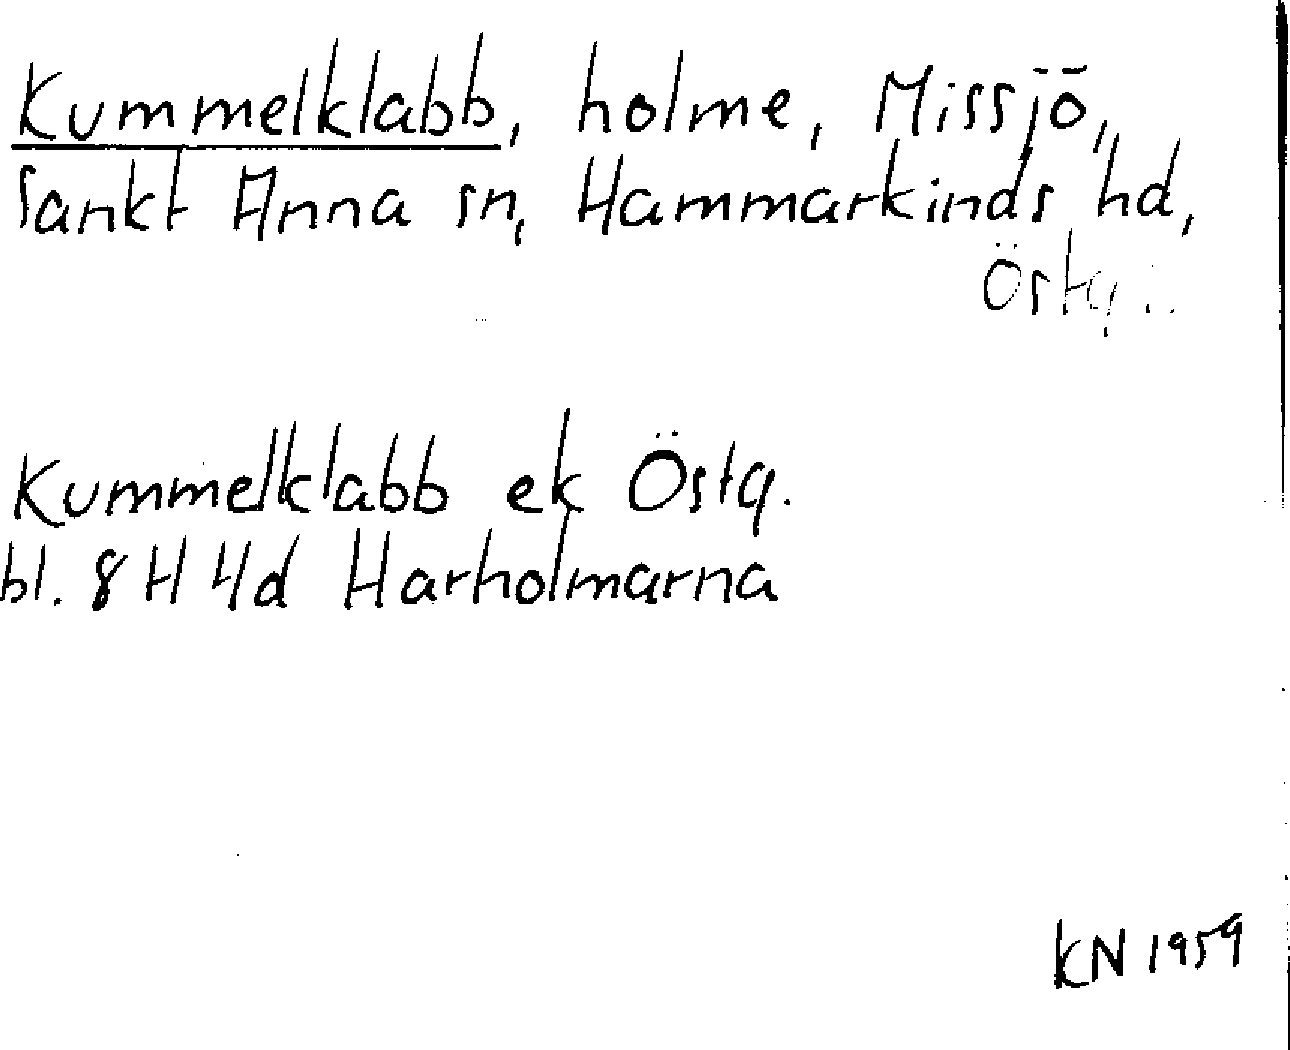 Kummelklabb, holme, Missjö,
Sankt Anna sn, Hammarkinds hd,
Östg.
Kummelklabb ek Östg.
bl. 8 H 4d Harholmarna
KN 1959